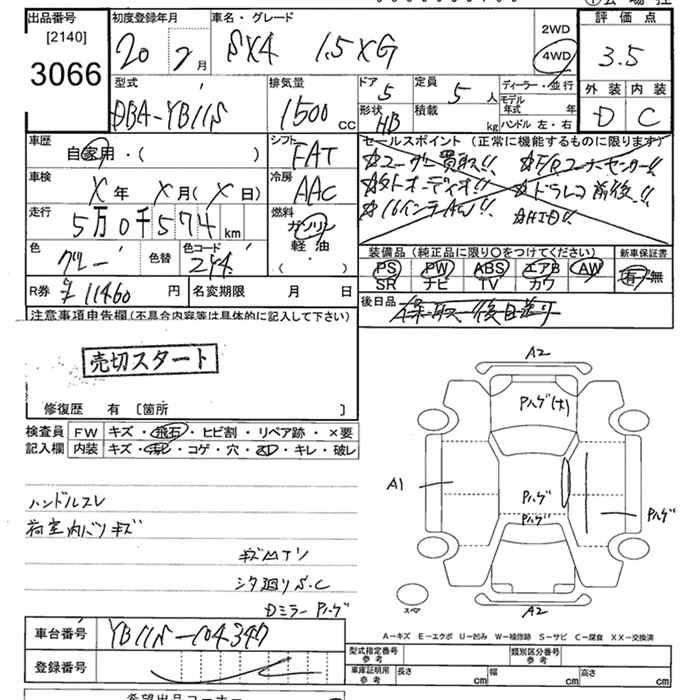 出品番号
[2140]
3066
初度登録年月
20 2月
車名・グレード
SX4 1.5XG
2WD
4WD
評価点
3.5
外装 内装
D C
型式
DBA-YB11S
排気量
1500 CC
ドア
5
形状
HB
定員
5 人
積載
kg
ディーラー・並行
モデル年式 年
ハンドル 左・右
車歴
自家用・( )
シフト
FAT
車検
X 年 X 月(X 日)
冷房
AAC
走行
5万0千574km
燃料
ガソリン
軽油
( ・ )
色
グレー
色替
色コード
Z44
R券
11460 円
名変期限 月 日
セールスポイント(正常に機能するものに限ります)
☆ユーザー買取!! ☆F/Rコーナーセンサー!!
☆外オーディオ!! ☆ドラレコ前後!!
☆16インチAW!! ☆HID!!
装備品(純正品に限り○をつけてください)
PS PW ABS エアB AW
SR ナビ TV カワ
新車保証書
有・無
後日品
注意事項申告欄(不具合内容等は具体的に記入して下さい)
売切スタート
修復歴 有 [箇所 ]
検査員記入欄
FW キズ・飛石・ヒビ割・リペア跡・×要
内装 キズ・汚れ・コゲ・穴・・キレ・破レ
ハンドルスレ
荷室内バリキズ
キズ凹アリ
シタ廻りS.C
Dミラー Pハゲ
A2
Pハゲ(大)
A1
Pハゲ
Pハゲ
Pハゲ
スペア
A2
A-キズ E-エクボ U-凹み W-補修跡 S-サビ C-腐食 XX-交換済
車台番号
YB11S-104347
登録番号
型式指定番号 参考
類別区分番号 参考
車庫証明用 参考
長さ cm 幅 cm 高さ cm
希望出品コーナー